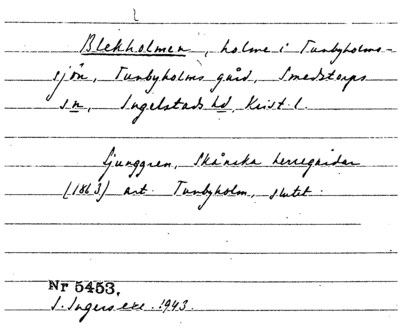 Blekholmen, holme i Tunbyholms-
sjön, Tunbyholms gård, Smedstorps
sn, Ingelstads hd, Krist. l.
Ljunggren, Skånska herregårdar
(1863) art. Tunbyholm, slutet.
Nr 5453.
I. Ingers exc. 1943.